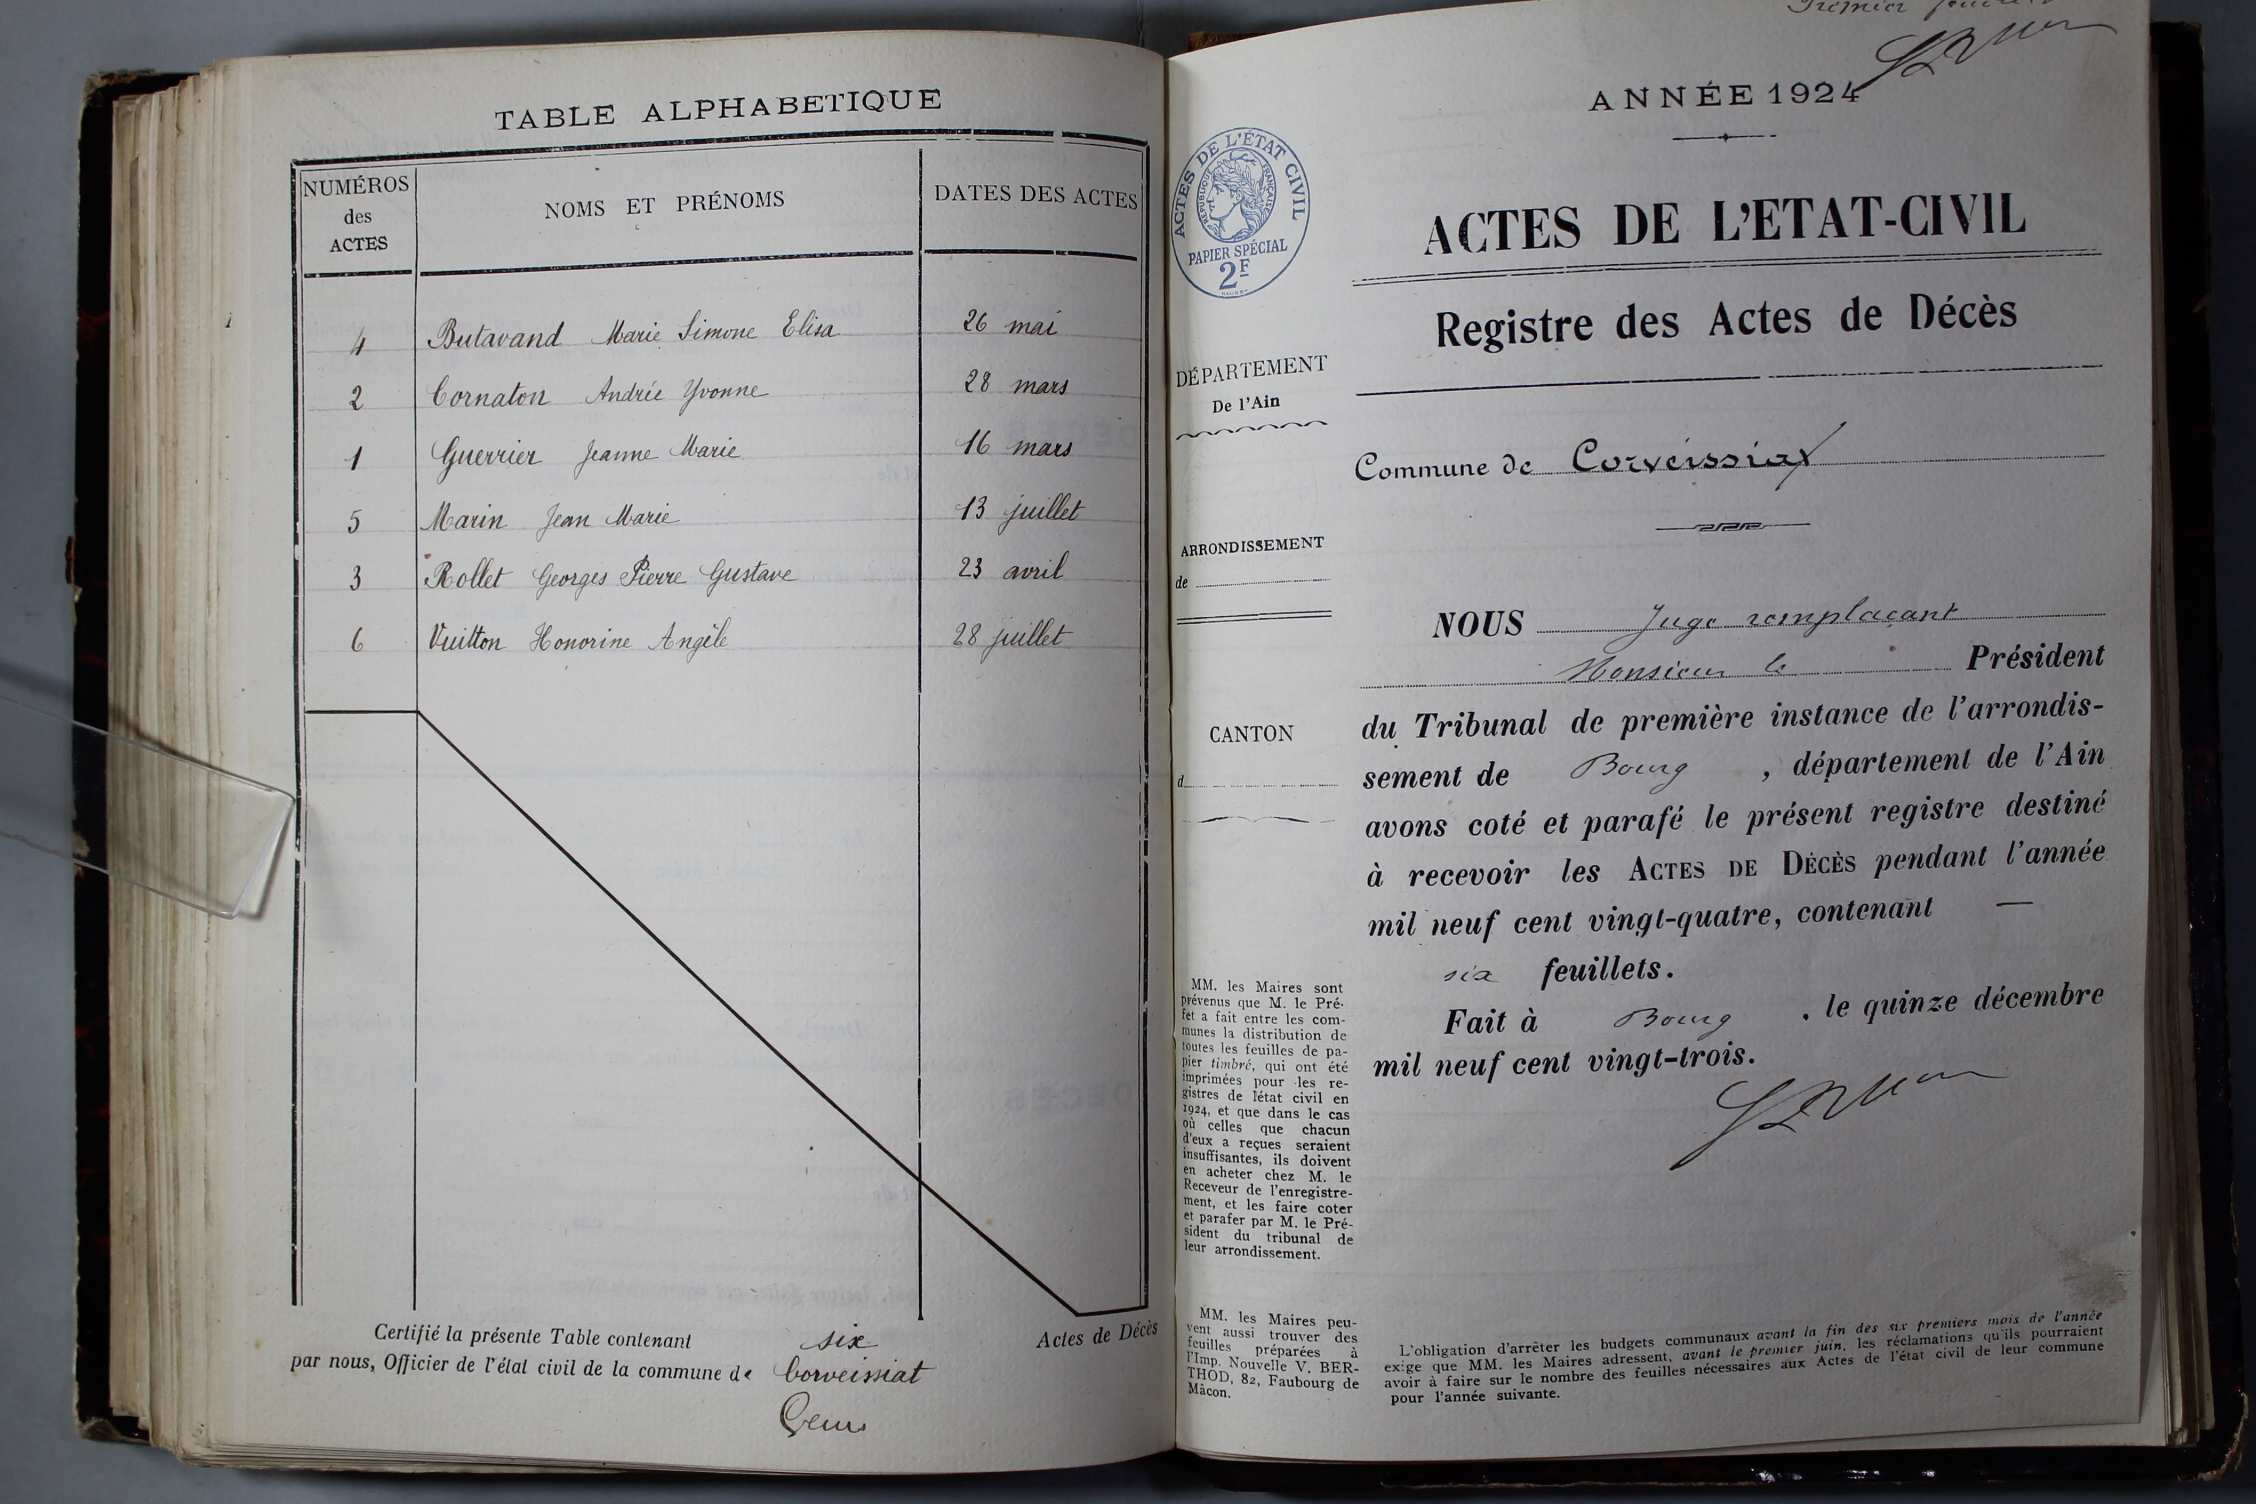 TABLE ALPHABETIQUE
NUMÉROS
des
ACTES
NOMS ET PRÉNOMS
DATES DES ACTES
4 Butavand Marie Simone Elisa 26 mai
2 Cornaton Andrée Yvonne 28 mars
1 Guerrier Jeanne Marie 16 mars
5 Marin Jean Marie 13 juillet
3 Rollet Georges Pierre Gustave 23 avril
6 Vuitton Honorine Angèle 28 juillet
Certifié la présente Table contenant six Actes de Décès
par nous, Officier de l'état civil de la commune de Corveissiat
Premier feuillet
ANNÉE 1924
ACTES DE L'ÉTAT CIVIL
RÉPUBLIQUE FRANÇAISE
PAPIER SPÉCIAL
2F
ACTES DE L'ETAT-CIVIL
Registre des Actes de Décès
DÉPARTEMENT
De l'Ain
Commune de Corveissiat
ARRONDISSEMENT
de
CANTON
d
NOUS Juge remplaçant
Monsieur le Président
du Tribunal de première instance de l'arrondis-
sement de Bourg, département de l'Ain
avons coté et parafé le présent registre destiné
à recevoir les ACTES DE DÉCÈS pendant l'année
mil neuf cent vingt-quatre, contenant —
six feuillets.
Fait à Bourg, le quinze décembre
mil neuf cent vingt-trois.
MM. les Maires sont
prévenus que M. le Pré-
fet a fait entre les com-
munes la distribution de
toutes les feuilles de pa-
pier timbré, qui ont été
imprimées pour les re-
gistres de l'état civil en
1924, et que dans le cas
où celles que chacun
d'eux a reçues seraient
insuffisantes, ils doivent
en acheter chez M. le
Receveur de l'enregistre-
ment, et les faire coter
et parafer par M. le Pré-
sident du tribunal de
leur arrondissement.
MM. les Maires peu-
vent aussi trouver des
feuilles préparées à
l'Imp. Nouvelle V. BER-
THOD, 82, Faubourg de
Mâcon.
L'obligation d'arrêter les budgets communaux avant la fin des six premiers mois de l'année
exige que MM. les Maires adressent, avant le premier juin, les réclamations qu'ils pourraient
avoir à faire sur le nombre des feuilles nécessaires aux Actes de l'état civil de leur commune
pour l'année suivante.